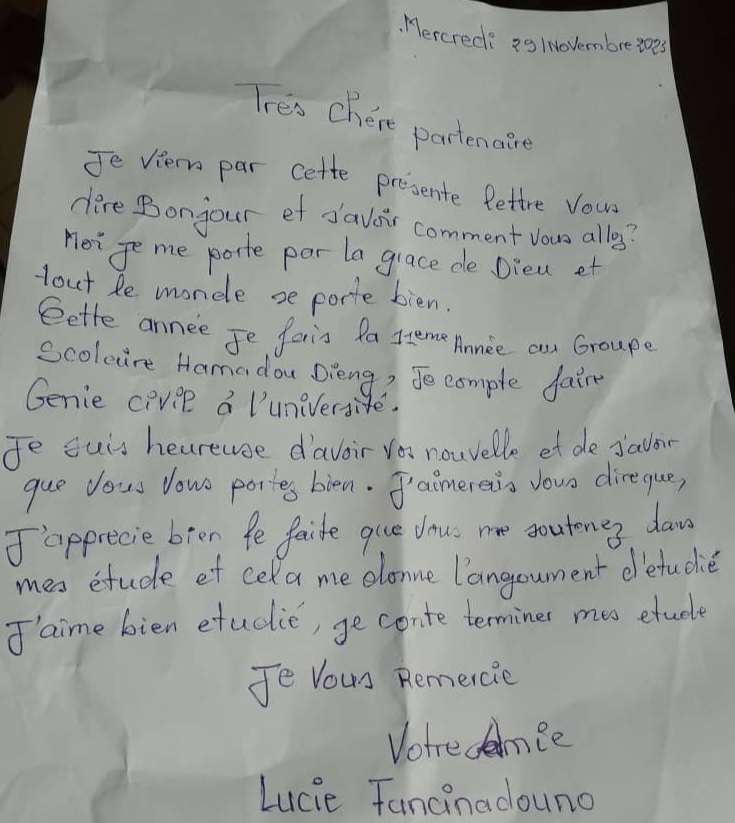 Mercredi 29/Novembre 2023
Trés chére partenaire
Je viens par cette présente lettre vous
dire Bonjour et s'avoir comment vous allez?
Moi je me porte par la grace de Dieu et
tout le monde se porte bien.
Cette année je fais la 11eme Année au Groupe
Scolaire Hamadou Dieng, Je compte faire
Genie civil á l'université.
Je suis heureuse d'avoir vos nouvelle et de s'avoir
que vous vous portez bien. J'aimerais vous dire que,
J'apprecie bien le faite que vous me soutenez dans
mes étude et cela me donne l'angoument d'étudié
J'aime bien etudié, je conte terminer mes etude
Je vous Remercie
Votre Amie
Lucie Fancinadouno